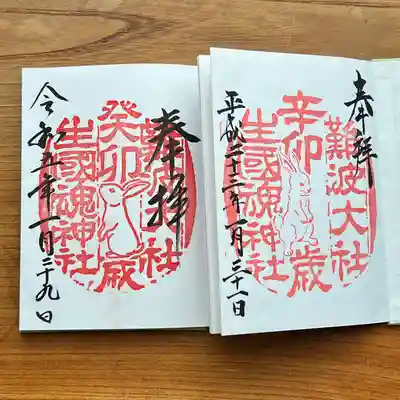 奉拝
難波大社
辛卯歳
生國魂神社
平成二十三年一月三十一日
奉拝
難波大社
癸卯歳
生國魂神社
令和五年一月二十九日